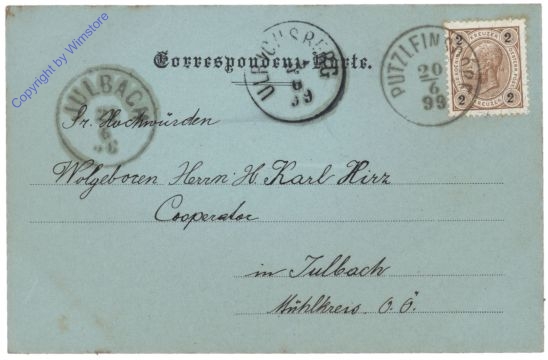 Copyright by Wimstore
Correspondenz-Karte.
JULBACH
ULRICHSBERG
6
99
PUTZLEINSDORF
20
6
99
2 KREUZER 2
2 KREUZER 2
Sr. Hochwürden
Wolgeboren Herrn H. Karl Hirz
Cooperator
in Julbach
Mühlkreis O.Ö.